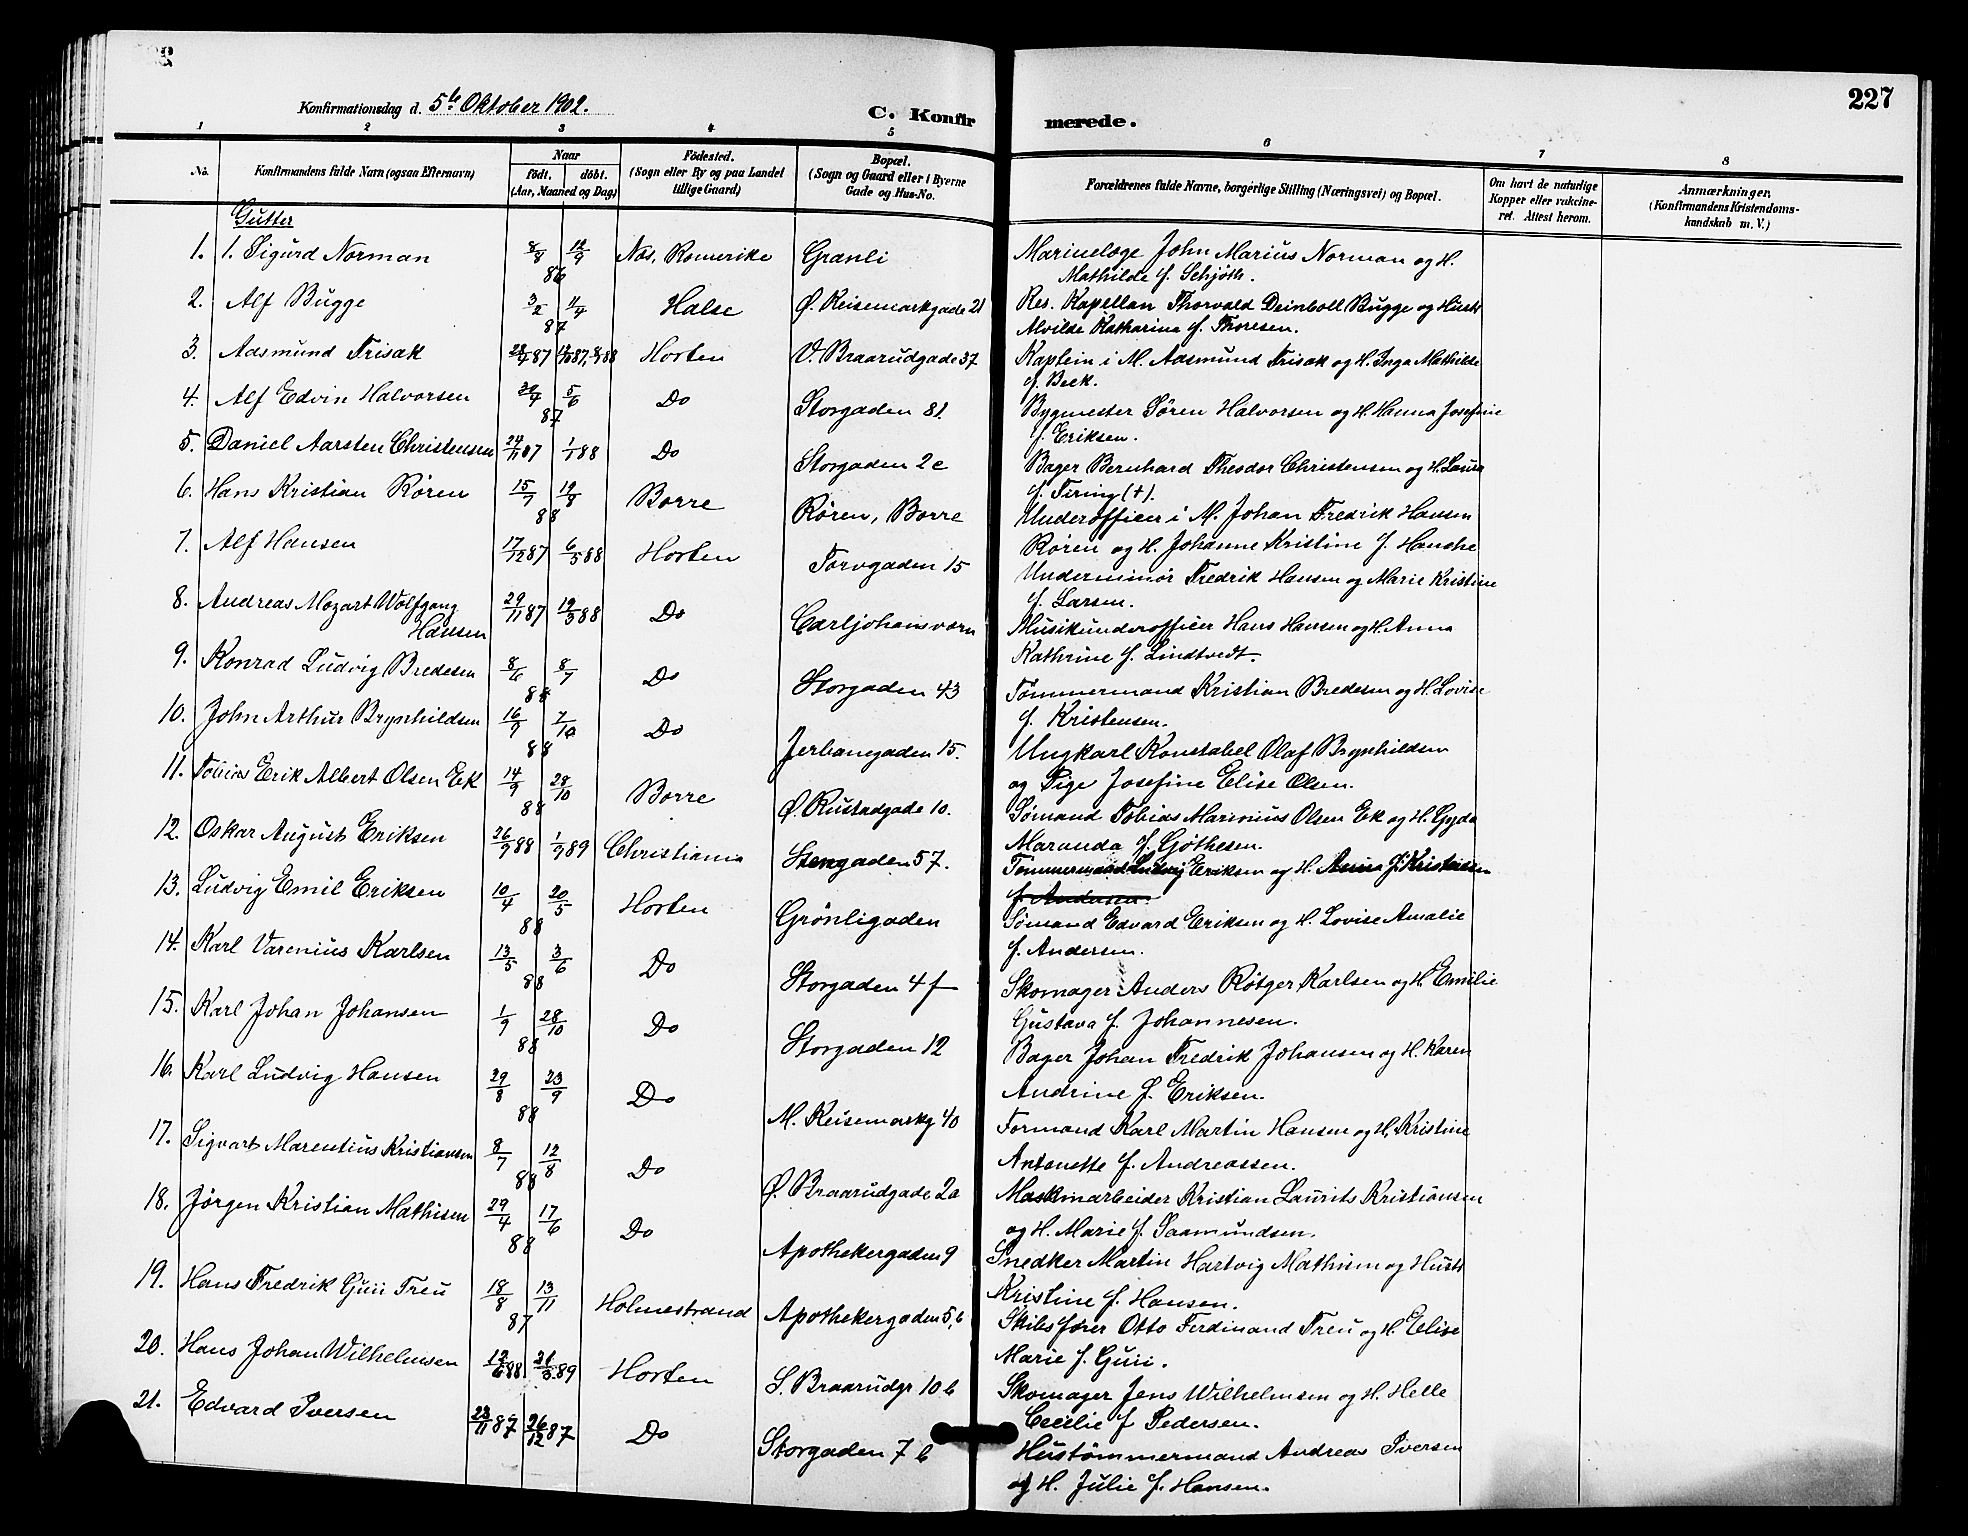 227
Konfirmationsdag d. 5te Oktober 1902.
C. Konfirmerede.
1 2 3 4 5 6 7 8
No. Konfirmandens fulde Navn (ogsaa Efternavn) Naar födt. döbt. (Aar, Maaned og Dag) Födested. (Sogn eller By og paa Landet tillige Gaard) Bopæl. (Sogn og Gaard eller i Byerne Gade og Hus-No. Forældrenes fulde Navne, borgerlige Stilling (Næringsvei) og Bopæl. Om havt de naturlige Kopper eller vaccineret. Attest herom. Anmærkninger, (Konfirmandens Kristendomskundskab m. V.)
Gutter
1. 1. Sigurd Norman 8/8 12/9 86 Næs, Romerike Granli Marinelæge John Marius Norman og H.
Mathilde f. Schjöth.
2. Alf Bugge 3/2 11/4 87 Halse Ø. Keisemarkgade 21 Res. Kapellan Thorvald Deinboll Bugge og Hustr
Alvilde Katharina f. Thoresen.
3. Adsmund Frisak Horten V. Braarudgade 37 Kaptein i M. Aasmund Frisak og H. Inga Mathilde
f. Beck.
4. Alf Edvin Halvorsen 5/6 87 Do Storgaden 81. Bygmester Sören Halvorsen og H. Hanna Josefine
f. Eriksen.
5. Daniel Aarsten Christensen 24/11 87 1/1 88 Do Storgaden 2c Bager Bernhard Theodor Christensen og H. Laura
f. Firing (+).
6. Hans Kristian Røren 15/7 19/8 88 Borre Røren, Borre Underofficer i M. Johan Fredrik Hansen
Røren og H. Johanne Kristine f. Hanche
7. Alf Hansen 17/12 87 6/5 88 Horten Torvgaden 15 Underminör Fredrik Hansen og Marie Kristine
f. Larsen.
8. Andreas Mozart Wolfgang Hansen 29/11 87 19/3 88 Do Carljohansværn Musikunderofficer Hans Hansen og H. Anna
Kathrine f. Lindtvedt.
9. Konrad Ludvig Bredesen 8/6 8/7 88 Do Storgaden 43 Tømmermand Kristian Bredesen og H. Lovise
f. Kristensen.
10. John Arthur Brynhildsen 16/9 7/10 88 Do Jerbanegaden 15. Ungkarl Konstabel Olaf Brynhildsen
og Pige Josefine Elise Olsen.
11. Tobias Erik Albert Olsen Ek 14/9 28/10 88 Borre Ø. Rustadgade 10. Sømand Tobias Marinius Olsen Ek og H. Gyda
Maranda f. Gjöthesen.
12. Oskar August Eriksen 26/9 88 1/9 89 Christiania Stengaden 57. Tømmermand Ludvig Eriksen og H. Anna f. Kristiansen
f. Andersen.
13. Ludvig Emil Eriksen 10/4 20/5 88 Horten Grønligaden Sømand Edvard Eriksen og H. Lovise Amalie
f. Andersen.
14. Karl Varenius Karlsen 13/5 3/6 88 Do Storgaden 4f Skomager Anders Røtger Karlsen og H. Emilie
Gustava f. Johannesen.
15. Karl Johan Johansen 1/9 28/10 88 Do Storgaden 12 Bager Johan Fredrik Johansen og H. Karen
Andrine f. Eriksen.
16. Karl Ludvig Hansen 29/8 23/9 88 Do M. Keisemarkg 40 Formand Karl Martin Hansen og H. Kristine
Antonette f. Andreassen.
17. Sigvart Marentius Kristiansen 8/7 12/8 88 Do Ø. Braarudgade 2a Maskinarbeider Kristian Laurits Kristiansen
og H. Marie f. Saamundsen.
18. Jörgen Kristian Mathisen 29/4 17/6 88 Do Apothekergaden 9 Snedker Martin Hartvig Mathisen og Hustr
Kristine f. Hansen.
19. Hans Fredrik Guii Treu 18/8 13/11 87 Holmestrand Apothekergaden 5,b Skibsfører Otto Ferdinand Treu og H. Elise
Marie f. Guii.
20. Hans Johan Wilhelmsen 12/6 88 21/3 89 Horten S. Braarudgt 10 b Skomager Jens Wilhelmsen og H. Helle
Cecilie f Pedersen.
21. Edvard Iversen 23/11 87 26/12 87 Do Storgaden 7 b Hustömmermand Andreas Iversen
og H. Julie f. Hansen.